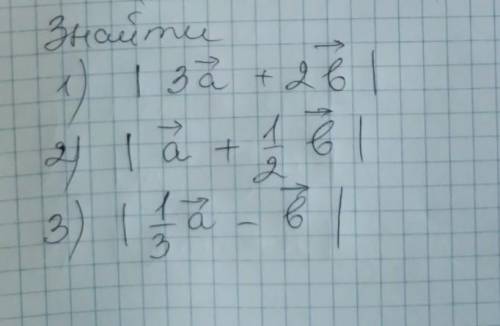 Знайти
1) | 3a⃗ + 2b⃗ |
2) | a⃗ + 1/2 b⃗ |
3) | 1/3 a⃗ - b⃗ |